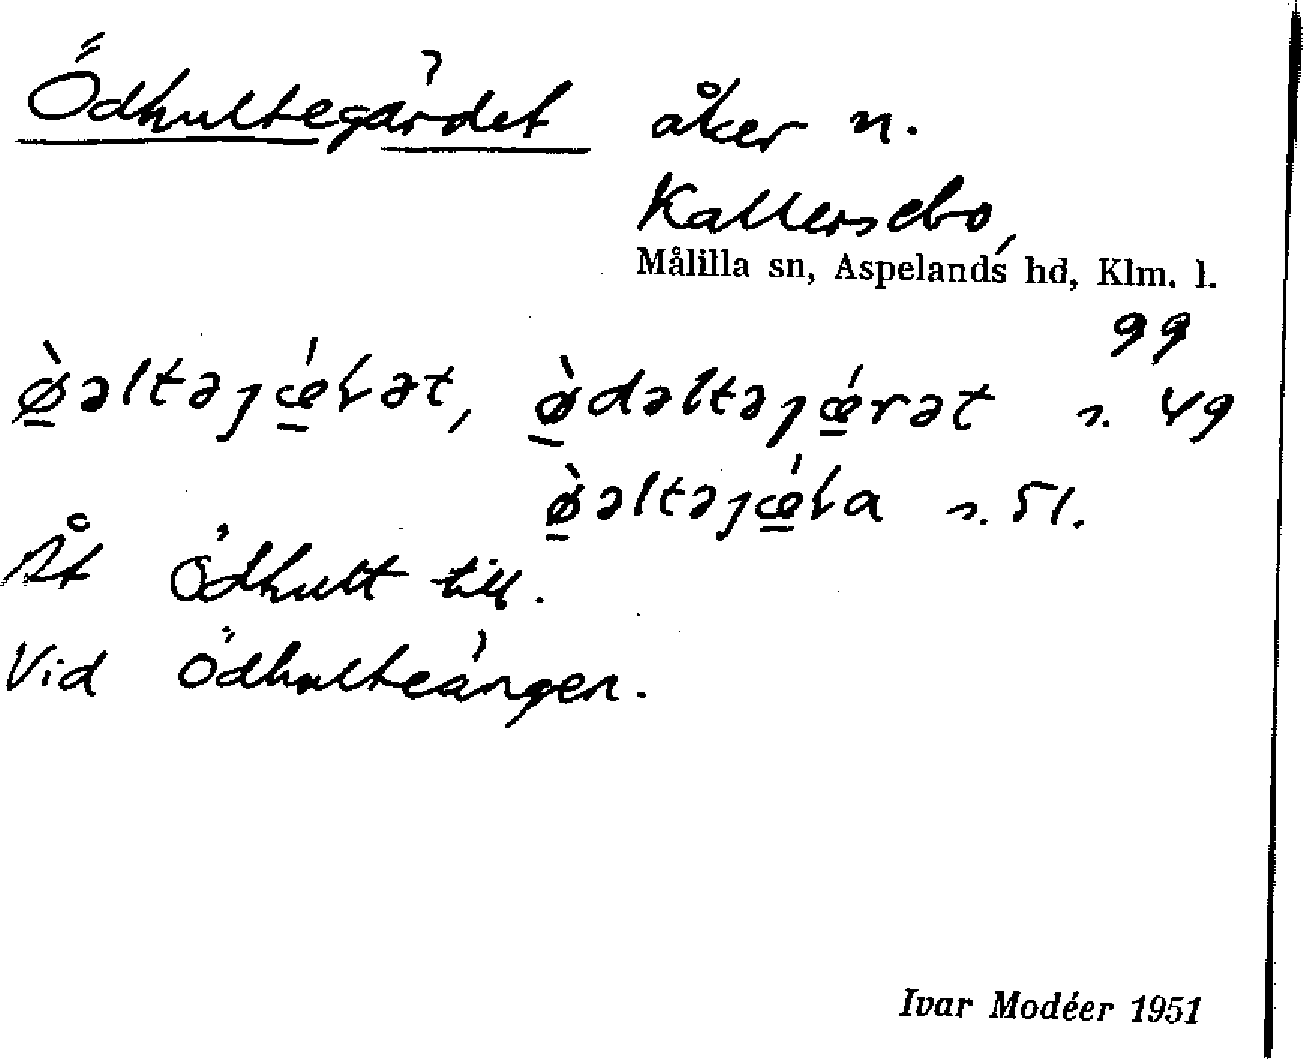 Ödhultegärdet åker n.
Kallersebo,
Målilla sn, Aspelands hd, Klm. l.
99
ø̠̀əltəȷœ̠́ɽət, ø̠̀dəltəȷœ̠́rət s. 49
ø̠̀əltəȷœ̠́ɽa s. 51.
Åt Ödhult till.
Vid Ödhulteängen.
Ivar Modéer 1951